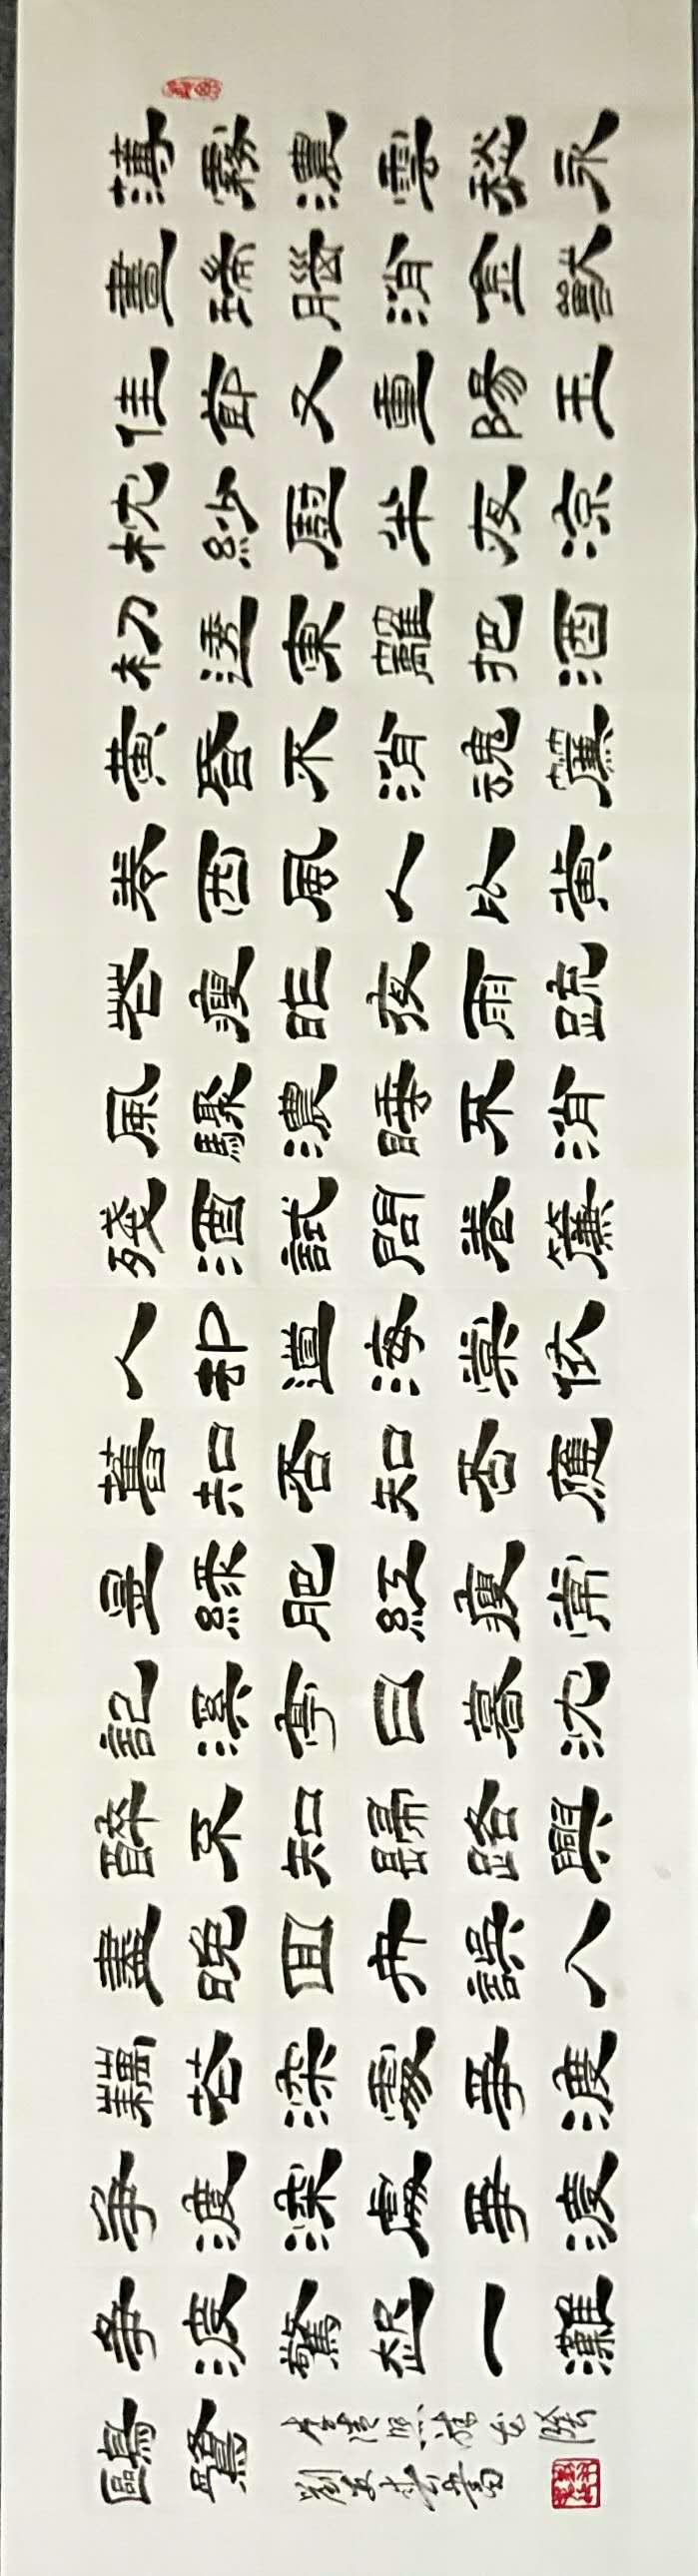 薄霧濃雲愁永
晝瑞腦消金獸
佳節又重陽玉
枕紗廚半夜涼
初透東籬把酒
黃昏不消魂簾
卷西風人比黃
花瘦昨夜雨疏
風驟濃睡不消
殘酒試問卷簾
人卻道海棠依
舊知否知否應
是綠肥紅瘦常
記溪亭日暮沈
醉不知歸路興
盡晚回舟誤入
藕花深處爭渡
爭渡深處爭渡
爭渡驚起一灘
鷗鷺
李清照醉花陰
劉 書